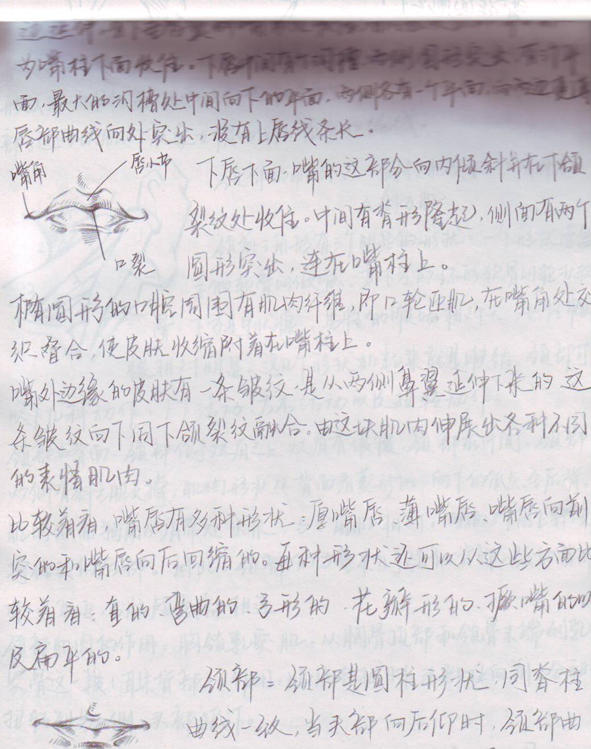 为嘴柱下面收住。下唇中间有个凹槽,两侧圆形突出,有许平
面,最大的沟槽处中间向下的平面,两侧各有一个平面,
唇部曲线向外突出,没有上唇线条长。
嘴角
唇小节
口裂
下唇下面,嘴的这部分向内倾斜并在下颌
裂纹处收住。中间有脊形隆起,侧面有两个
圆形突出,连在嘴柱上。
椭圆形的口腔周围有肌肉纤维,即口轮匝肌,在嘴角处交
织叠合,使皮肤收缩附着在嘴柱上。
嘴外边缘的皮肤有一条皱纹,是从两侧鼻翼延伸下来的 这
条皱纹向下同下颌裂纹融合。由这块肌肉伸展出各种不同
的表情肌肉。
比较着看,嘴唇有多种形状:厚嘴唇、薄嘴唇、嘴唇向前
突的和嘴唇向后回缩的。每种形状还可以从这些方面比
较着看:直的 弯曲的 弓形的 花瓣形的 撅嘴的的
及扁平的。
颈部:颈部是圆柱形状,同脊柱
曲线一致,当头部向后仰时,颈部曲